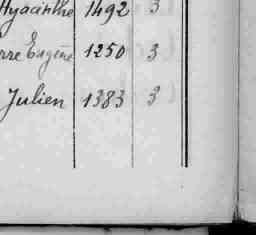 Hyacinthe 1492 3
erre Eugène 1250 3
Julien 1383 3